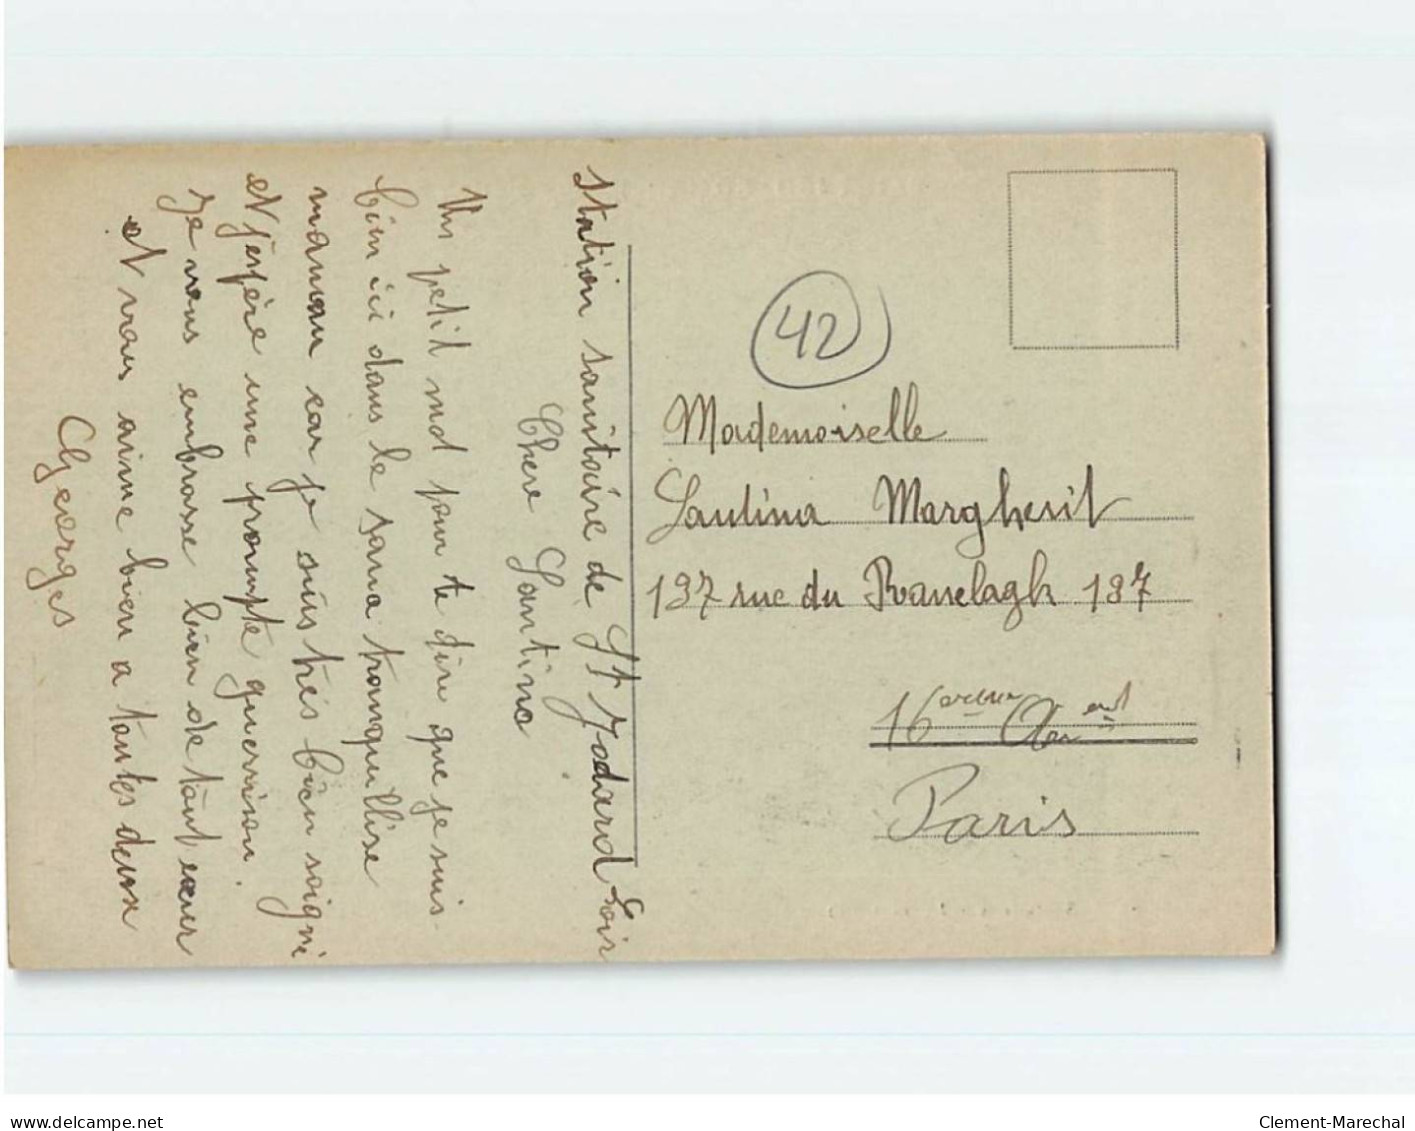 Station sanitaire de St Jodard Loir
Chere Santina
Un petit mot pour te dire que je suis
bien ici dans le sana tranquillise
maman car je suis très bien soigné
et j'espère une prompte guerrison.
Je vous embrasse bien de tout cœur
et vous aime bien a toutes deux
Georges
42
Mademoiselle
Santina Margherit
137 rue du Ranelagh 137
16
Paris
www.delcampe.net
Clement-Marechal